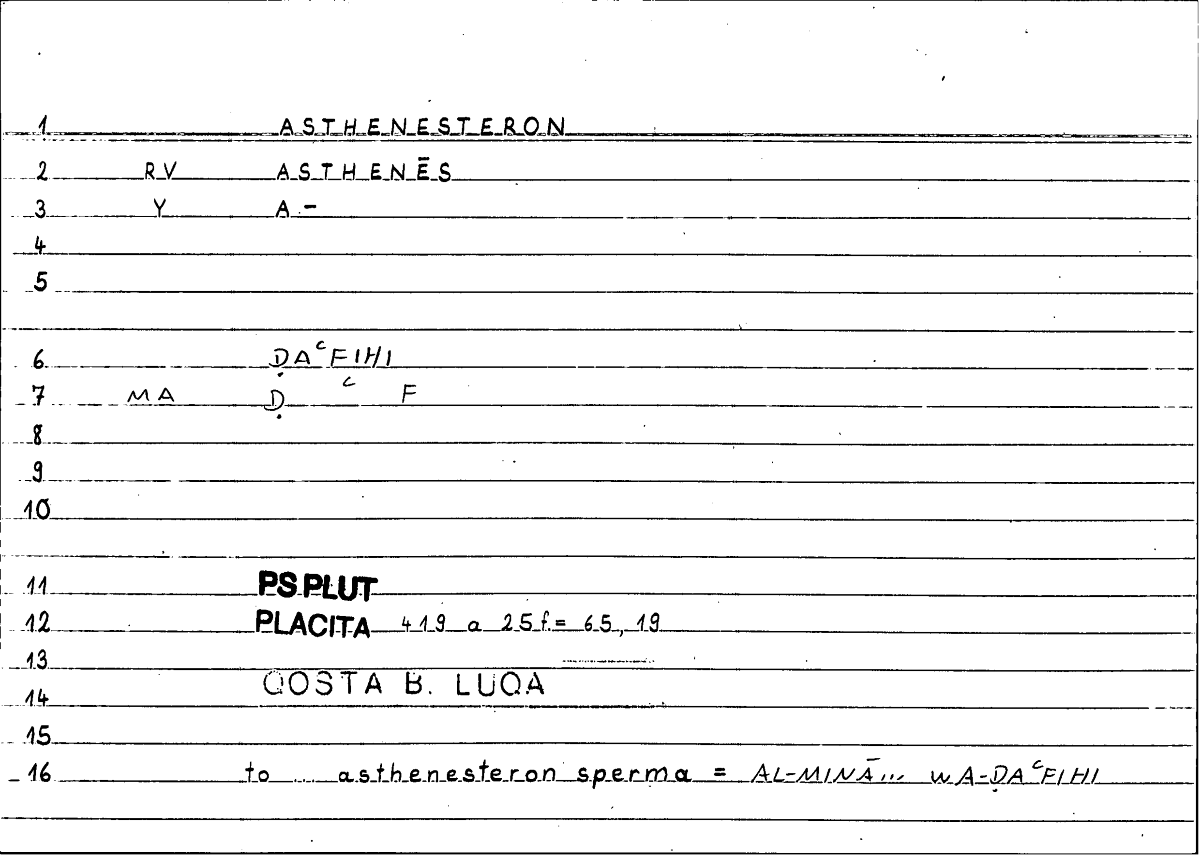 1 ASTHENESTERON
2 RV ASTHENĒS
3 Y A.-
4
5
6 ḌAᶜFIHI
7 MA Ḍ ᶜ F
8
9
10
11 PS PLUT
12 PLACITA 419 a 25f. = 65,19
13
QOSTA B. LUQA
14
15
16 to ... asthenesteron sperma = AL-MINĀ... WA-ḌAᶜFIHI